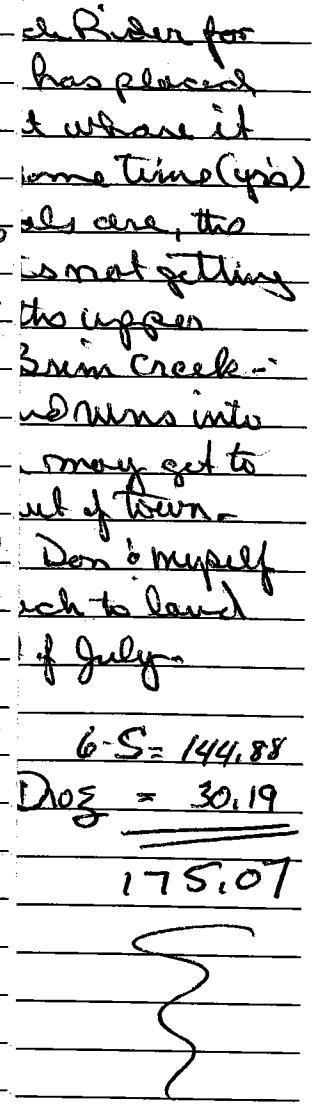 ch Rider for
has placed
t where it
ome time (yrs)
als are, the
is not getting
the upper
Brim Creek -
nd runs into
may get to
ut of town.
Don & myself
ch to land
of July.
6-S = 144.88
= 30.19
175.07